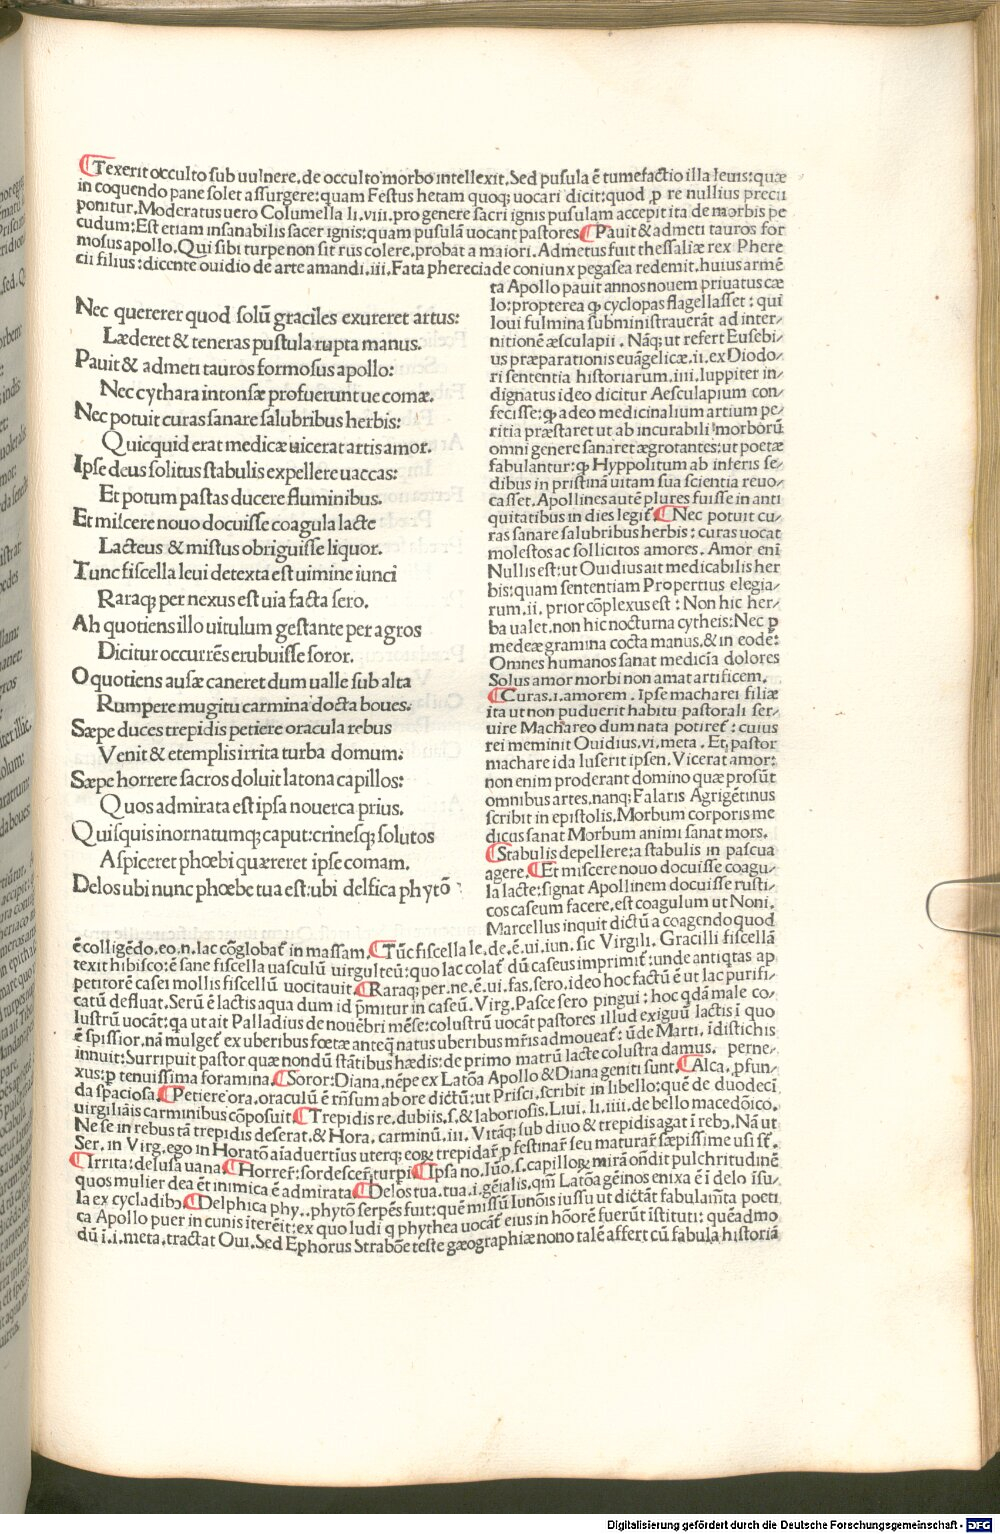 ¶Texerit occulto sub uulnere, de occulto morbo intellexit. Sed pusula ē tumefactio illa leuis: quæ
in coquendo pane solet assurgere: quam Festus hetam quoq; uocari dicit: quod ꝓ re nullius precii
ponitur. Moderatus uero Columella li. viii. pro genere sacri ignis pusulam accepit ita de morbis pe
cudum: Est etiam insanabilis sacer ignis: quam pusulā uocant pastores. ¶Pauit & admeti tauros for
mosus apollo. Qui sibi turpe non sit rus colere, probat a maiori. Admetus fuit thessaliæ rex Phere
cii filius: dicente ouidio de arte amandi. iii. Fata phereciade coniunx pegasea redemit. huius armē
Nec quererer quod solū graciles exureret artus:
Læderet & teneras pustula rupta manus.
Pauit & admeti tauros formosus apollo:
Nec cythara intonsæ profuerunt ue comæ.
Nec potuit curas sanare salubribus herbis:
Quicquid erat medicæ uicerat artis amor.
Ipse deus solitus stabulis expellere uaccas:
Et potum pastas ducere fluminibus.
Et miscere nouo docuisse coagula lacte
Lacteus & mistus obriguisse liquor.
Tunc fiscella leui detexta est uimine iunci
Raraq; per nexus est uia facta sero.
Ah quotiens illo uitulum gestante per agros
Dicitur occurrēs erubuisse soror.
O quotiens ausæ caneret dum ualle sub alta
Rumpere mugitu carmina docta boues.
Sæpe duces trepidis petiere oracula rebus
Venit & e templis irrita turba domum:
Sæpe horrere sacros doluit latona capillos:
Quos admirata est ipsa nouerca prius.
Quisquis inornatumq; caput: crinesq; solutos
Aspiceret phœbi quæreret ipse comam.
Delos ubi nunc phœbe tua est: ubi delfica phytō
ta Apollo pauit annos nouem priuatus cæ
lo: propterea ꝙ cyclopas flagellasset: qui
Ioui fulmina subministrauerāt ad inter/
nitionē æsculapii. Nāq; ut refert Eusebi/
us præparationis euāgelicæ. ii. ex Diodo/
ri sententia historiarum. iiii. Iuppiter in/
dignatus ideo dicitur Aesculapium con/
fecisse: ꝙ adeo medicinalium artium pe/
ritia præstaret ut ab incurabili morborū
omni genere sanaret ægrotantes: ut poetæ
fabulantur: ꝙ Hyppolitum ab inferis se/
dibus in pristinā uitam sua scientia reuo/
casset. Apollines autē plures fuisse in anti
quitatibus in dies legit̄. ¶Nec potuit cu/
ras sanare salubribus herbis: curas uocat
molestos ac sollicitos amores. Amor eni
Nullis est: ut Ouidius ait medicabilis her
bis: quam sententiam Propertius elegia/
rum. ii. prior cōplexus est: Non hic her/
ba ualet, non hic nocturna cytheis: Nec ꝑ
medeæ gramina cocta manus, & in eodē:
Omnes humanos sanat medicīa dolores
Solus amor morbi non amat artificem.
¶Curas. i. amorem. Ipse macharei filiæ
ita ut non puduerit habitu pastorali ser/
uire Machareo dum nata potiret̄: cuius
rei meminit Ouidius. vi. meta. Et pastor
machare ida luserit ipsen. Vicerat amor:
non enim proderant domino quæ prosūt
omnibus artes, nanq; Falaris Agrigētinus
scribit in epistolis. Morbum corporis me
dicus sanat Morbum animi sanat mors.
¶Stabulis depellere: a stabulis in pascua
agere. ¶Et miscere nouo docuisse coagu/
la lacte: signat Apollinem docuisse rusti/
cos caseum facere, est coagulum ut Noni.
Marcellus inquit dictū a coagendo quod
ē colligēdo. eo. n. lac cōglobat̄ in massam. ¶Tūc fiscella le. de. ē. ui. iun. sic Virgili. Gracilli fiscellā
texit hibisco: ē sane fiscella uasculū uirgulteū: quo lac colat̄ dū caseus imprimit̄: unde antiqtas ap
petitorē casei mollis fiscellū uocitauit. ¶Raraq; per. ne. ē. ui. fas. sero. ideo hoc factū ē ut lac purifi/
catū defluat. Serū ē lactis aqua dum id p̄mitur in caseū. Virg. Pasce sero pingui: hoc qdā male co/
lustrū uocāt: qa ut ait Palladius de nouēbri mēse: colustrū uocāt pastores illud exiguū lactis ī quo
ē spissior. nā mulget̄ ex uberibus fœtæ anteq̄ natus uberibus mr̄is admoueat̄: ūde Marti. ī distichis
innuit: Surripuit pastor quæ nondū stātibus hædis: de primo matrū lacte colustra damus. perne/
xus: ꝑ tenuissima foramina. ¶Soror: Diana, nēpe ex Latōa Apollo & Diana geniti sunt. ¶Alca. ꝓfun/
da spaciosa. ¶Petiere ora. oraculū ē rn̄sum ab ore dictū: ut Prisci. scribit in libello: quē de duodecī
uirgiliāis carminibus cōposuit. ¶Trepidis re. dubiis. s. & laboriosis. Liui. li. iiii. de bello macedōico.
Ne se in rebus tā trepidis deserat. & Hora. carminū. iii. Vitāq; sub diuo & trepidis agat ī rebꝫ. Nā ut
Ser. in Virg. ego in Horatō aīaduertīus uterq; eoꝝ trepidar̄ ꝓ festinar̄ seu maturar̄ sæpissime usi st̄.
¶Irrita: delusa uana. ¶Horrer̄: sordescer̄: turpi. ¶Ipsa no. Iūo. s. capilloꝝ mirā oñdit pulchritudinē
quos mulier dea ēt inimica ē admirata. ¶Delos tua. tua. i. gēialis, qm̄ Latōa gēinos enixa ē ī delo īsu/
la ex cycladibꝫ. ¶Delphica phy.. phytō serpēs fuit: quē missū Iunōis iussu ut dictāt fabulamīta poeti
ca Apollo puer in cunis iterēit: ex quo ludi q phythea uocāt̄ eius in hōorē fuerūt īstituti: quēadmo
dū ī. i. meta. tractat Oui. Sed Ephorus Strabōe teste gæographiæ nono talē affert cū fabula historiā
Digitalisierung gefördert durch die Deutsche Forschungsgemeinschaft - DFG